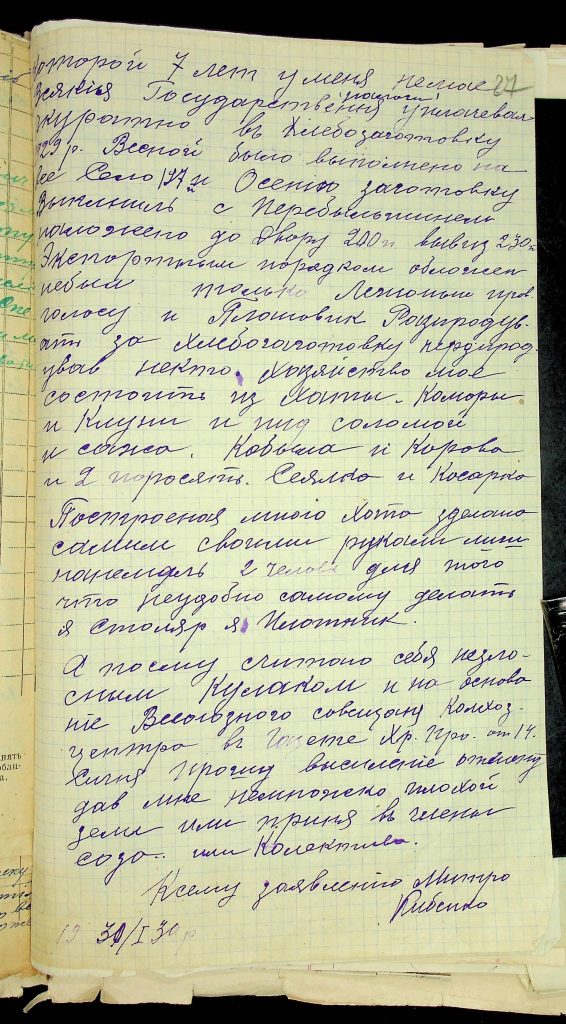 которой 7 лет у меня немае 27
Всякія Государственыя налоги уплачевал
акуратно въ Хлебозаготовку
29 р. Весной было выполнено на
все Село 197 п Осенью заготовку
Выполниль с Перебильшинем
наложено до двору 200 п вывиз 230 п
Экспортным порядком обложен
небыл только Лешоный прав.
голосу и Плановик Розпродув-
ать за хлебозаготовку нерозпрод.
ував некто. Хозяйство мое
состоить из Хаты. Коморы
и Клуни и пид соломой
и сажа. Кобыла и Корова
и 2 поросять. Сеялка и Косарка
Построеная мною Хата зделана
самим своими руками лиш
нанемаль 2 челов для того
что неудобно самому делать
я столяр я Плотник.
А посему считаю себя незло-
сным Кулаком и на основа
ніе Всесоюзного совещаня Колхоз-
центра въ Газете Хр. Про. от 14.
Сичня прошу висиленіе отменить
дав мне немножко плохой
земли или приня въ члены
соза.. или Колектива.
Ксему заявлению Митро
Рибенко
19 30/I 30 р